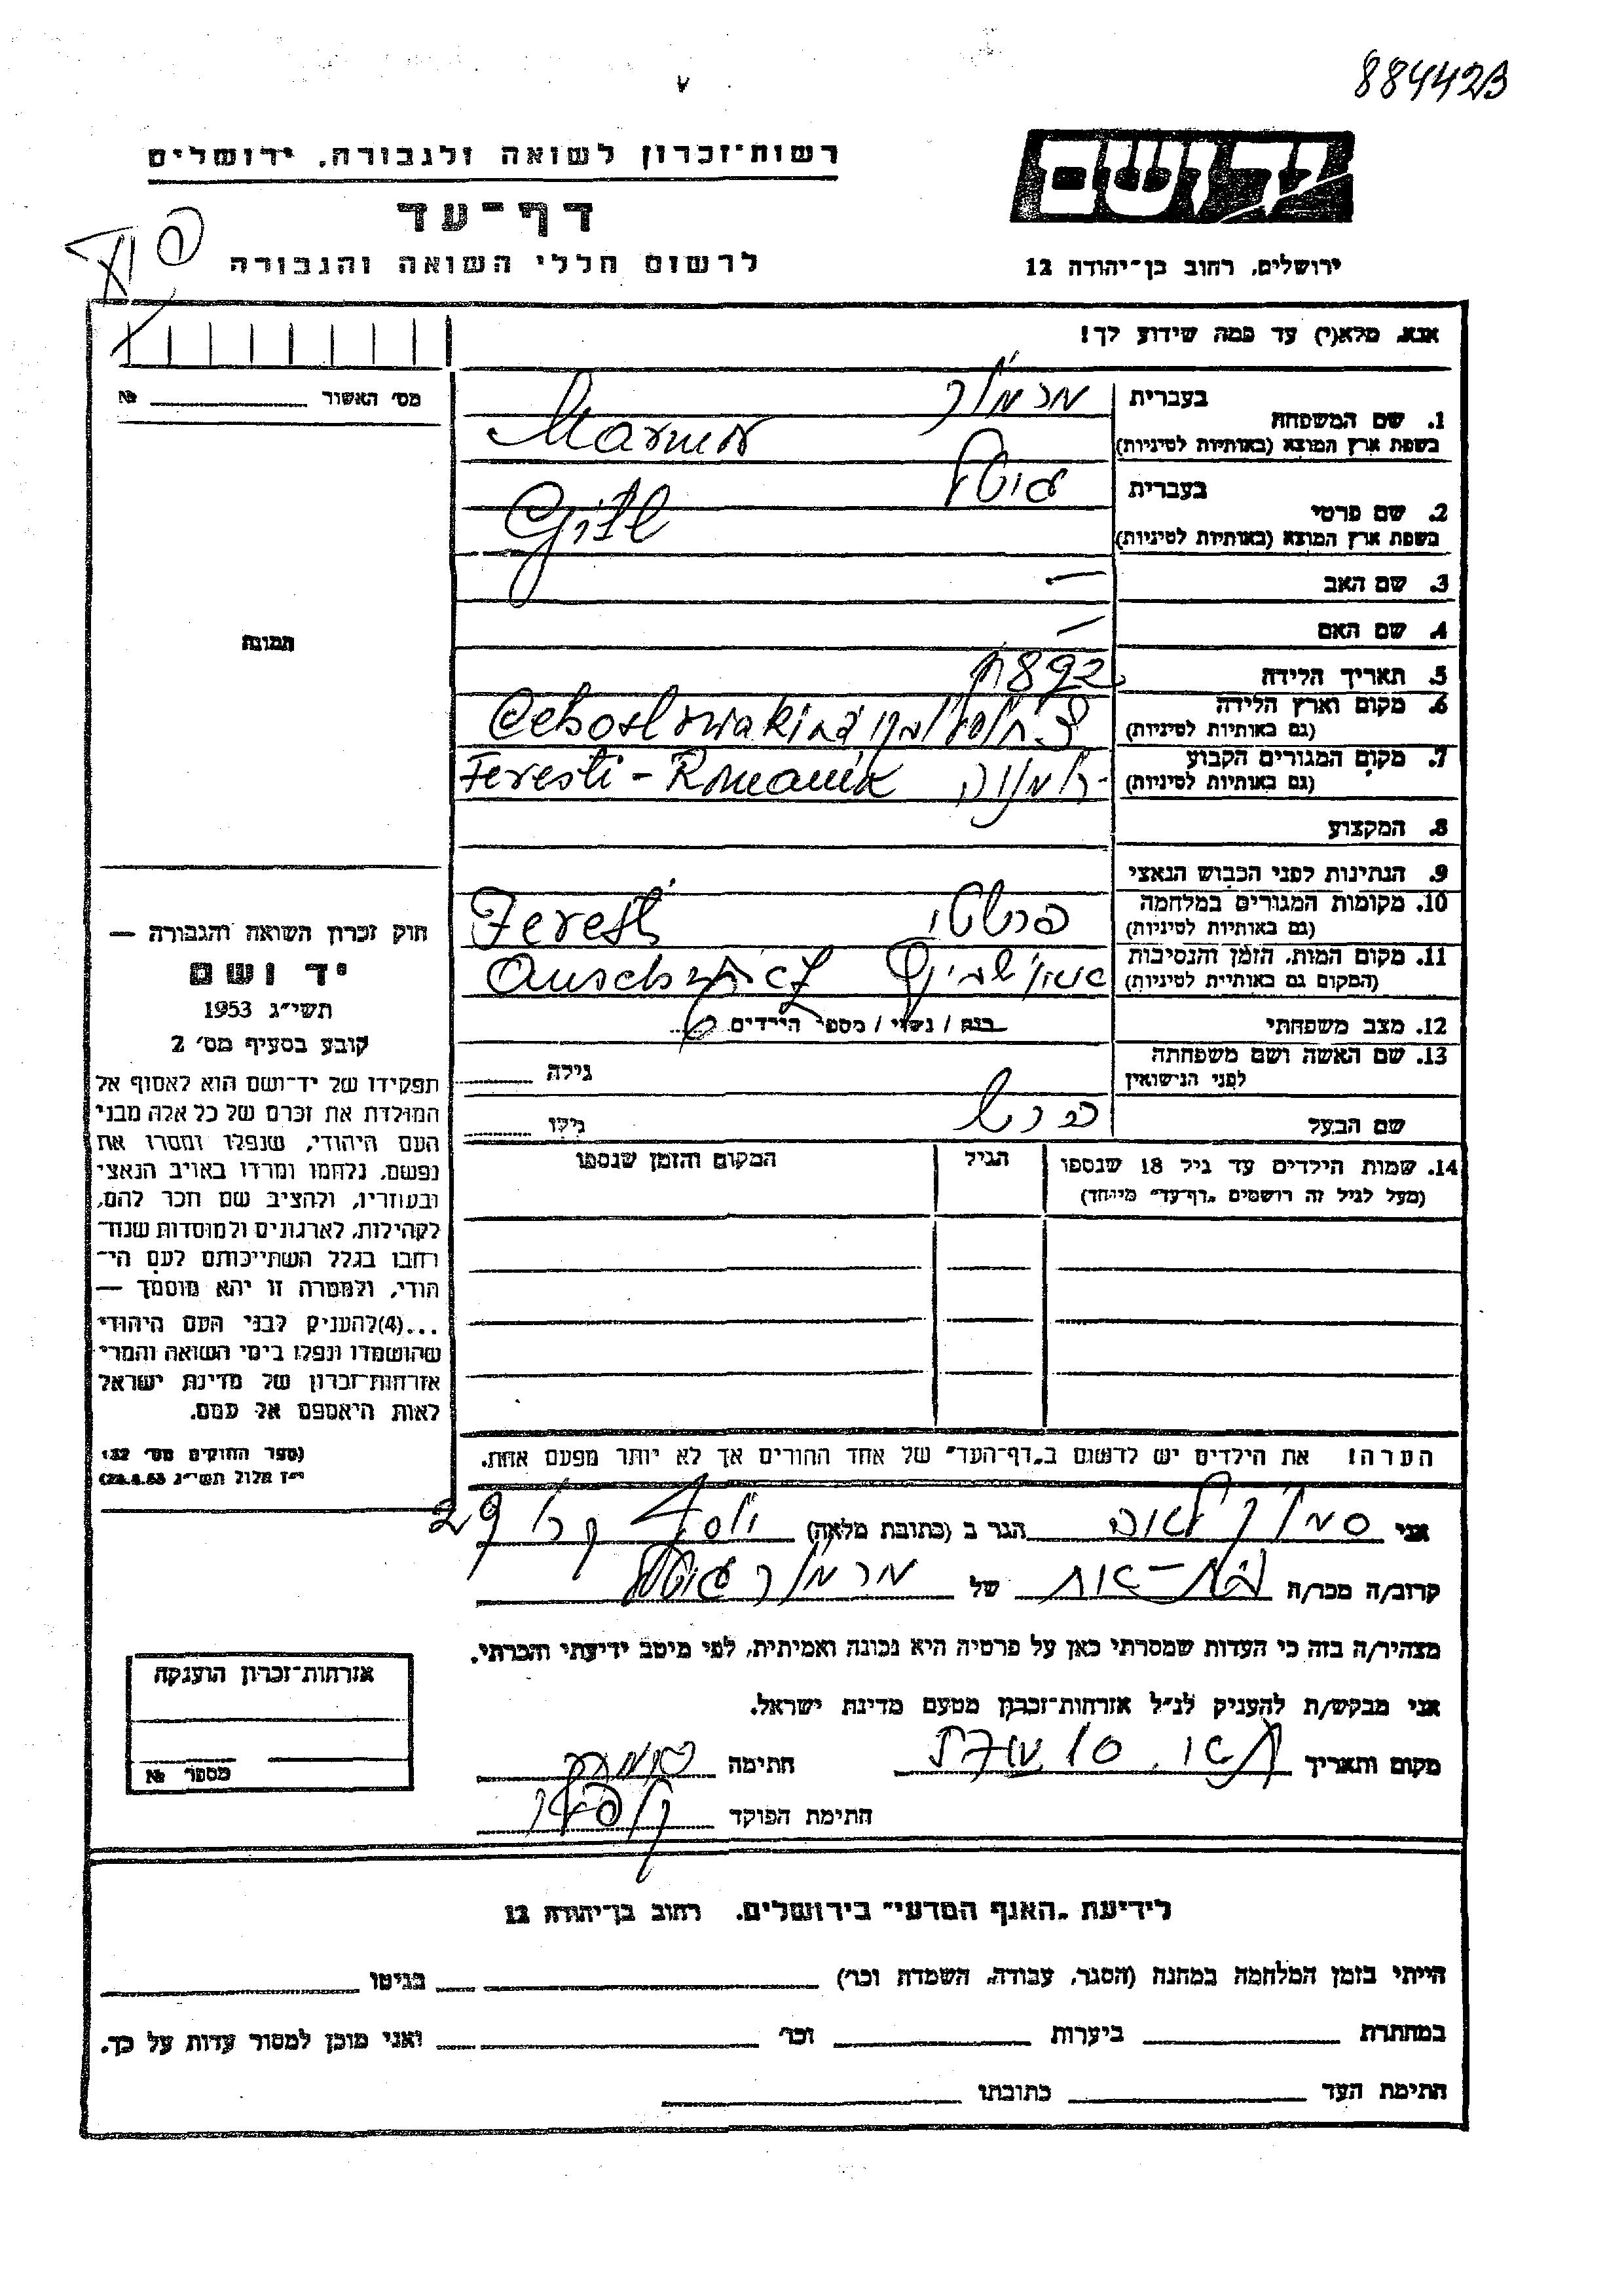 884423
רשות־זכרון לשואה ולגבורה, ירושלים
דף־עד
לרשום חללי השואה והגבורה
יד ושם
ירושלים, רחוב בן־יהודה 12
אנא, מלא(י) עד כמה שידוע לך!
מס' האשור № 
1. שם המשפחה
בעברית
בשפת ארץ המוצא (באותיות לטיניות)
Marmor
2. שם פרטי
בעברית גיטל
בשפת ארץ המוצא (באותיות לטיניות)
3. שם האב —
4. שם האם —
תמונה
5. תאריך הלידה
6. מקום וארץ הלידה
(גם באותיות לטיניות)
7. מקום המגורים הקבוע
(גם באותיות לטיניות)
רומניה Feresti - Romania
8. המקצוע
9. הנתינות לפני הכבוש הנאצי
10. מקומות המגורים במלחמה
(גם באותיות לטיניות)
פרשטי Feresti
11. מקום המות, הזמן והנסיבות
(המקום גם באותיות לטיניות)
12. מצב משפחתי
רווק / נשוי / מספר הילדים 6
13. שם האשה ושם משפחתה
לפני הנישואין
גילה
שם הבעל
גילו
14. שמות הילדים עד גיל 18 שנספו
(מעל לגיל זה רושמים „דף־עד" מיוחד)
הגיל
המקום והזמן שנספו
חוק זכרון השואה והגבורה —
יד ושם
תשי״ג 1953
קובע בסעיף מס' 2
תפקידו של יד־ושם הוא לאסוף אל
המולדת את זכרם של כל אלה מבני
העם היהודי, שנפלו ומסרו את
נפשם, נלחמו ומרדו באויב הנאצי
ובעוזריו, ולהציב שם וזכר להם,
לקהילות, לארגונים ולמוסדות שנח־
רבו בגלל השתייכותם לעם הי־
הודי, ולמטרה זו יהא מוסמך —
...(4) להעניק לבני העם היהודי
שהושמדו ונפלו בימי השואה והמרי
אזרחות־זכרון של מדינת ישראל
לאות היאספם אל עמם.
(ספר החוקים מס' 132,
י״ז אלול תשי״ג 28.8.53)
הערה: את הילדים יש לרשום ב„דף־העד" של אחד ההורים אך לא יותר מפעם אחת.
אני
הגר ב (כתובת מלאה)
29
קרוב/ה מכר/ה בת-אחות של
גיטל
מצהיר/ה בזה כי העדות שמסרתי כאן על פרטיה היא נכונה ואמיתית, לפי מיטב ידיעתי והכרתי.
אני מבקש/ת להעניק לנ״ל אזרחות־זכרון מטעם מדינת ישראל.
מקום ותאריך
חתימה
חתימת הפוקד
אזרחות־זכרון הוענקה
מספר №
לידיעת „האגף המדעי" בירושלים, רחוב בן־יהודה 12
הייתי בזמן המלחמה במחנה (הסגר, עבודה, השמדה וכו') בגיטו
במחתרת ביערות וכו' ואני מוכן למסור עדות על כך.
חתימת העד כתובתו